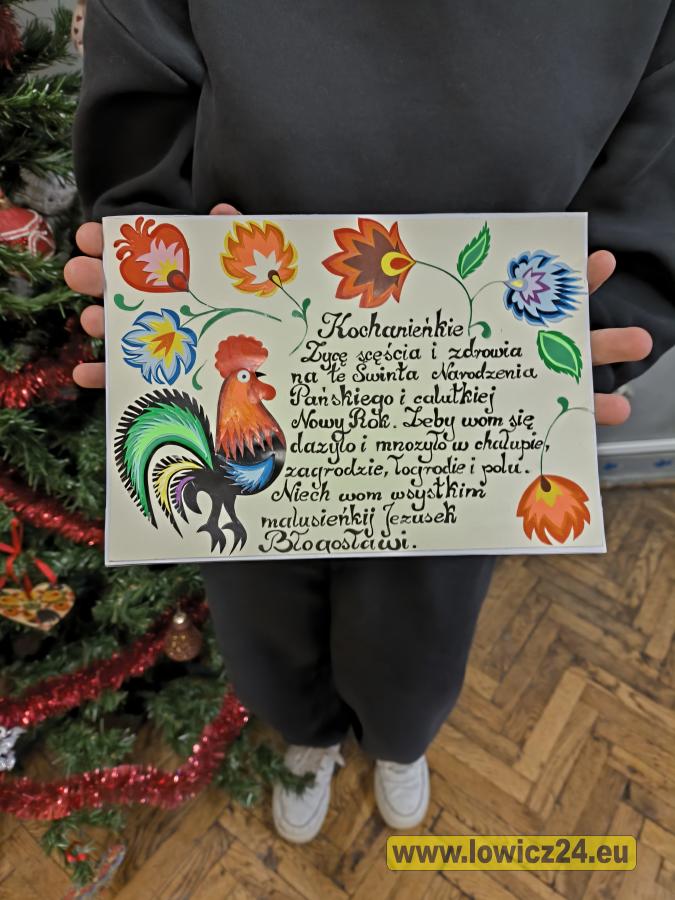 Kochanieńkie
Zycę scęścia i zdrowia
na te Świnta Narodzenia
Pańskiego i calutkiej
Nowy Rok. Zeby wom się
dazyło i mnozyło w chałupie,
zagrodzie, łogrodie i polu.
Niech wom wsystkim
malusieńkij Jezusek
Błogosławi.
www.lowicz24.eu